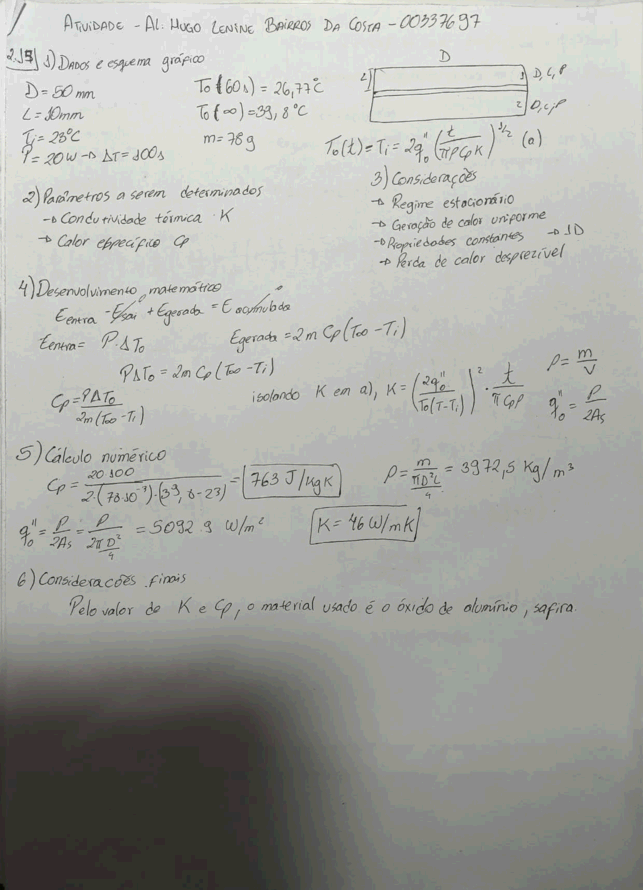 ATIVIDADE - AL. HUGO LENINE BAIRROS DA COSTA - 00337697
2.15 1) DADOS e esquema gráfico
D = 50 mm
L = 10mm
Ti = 23°C
P = 20W → ΔT = 100s
To (60s) = 26,77°C
To (∞) = 39,8°C
m = 78g
D
L
1 D, L, P
2 D, L, P
To(t) = Ti = 2q''o (t/πρCpK)^1/2 (a)
2) Parâmetros a serem determinados
→ Condutividade térmica K
→ Calor específico Cp
3) Considerações
→ Regime estacionário
→ Geração de calor uniforme
→ Propriedades constantes → 1D
→ Perda de calor desprezível
4) Desenvolvimento matemático
Eentra - Esai + Egerada = Eacumulada
Eentra = P.ΔTo Egerada = 2m Cp (T∞ - Ti)
PΔTo = 2m Cp (T∞ - Ti)
Cp = PΔTo / 2m (T∞ - Ti)
isolando K em a), K = (2q''o / To(T-Ti))² . t / πCpρ
ρ = m/V
q''o = P/2As
5) Cálculo numérico
Cp = 20 100 / 2.(78.10⁻³).(39,8-23) = 763 J/kgK
ρ = m / (πD²L/4) = 3972,5 Kg/m³
q''o = P/2As = P / (2πD²/4) = 5092 9 W/m²
K = 46 W/mK
6) Considerações finais
Pelo valor de K e Cp, o material usado é o óxido de alumínio, safira.